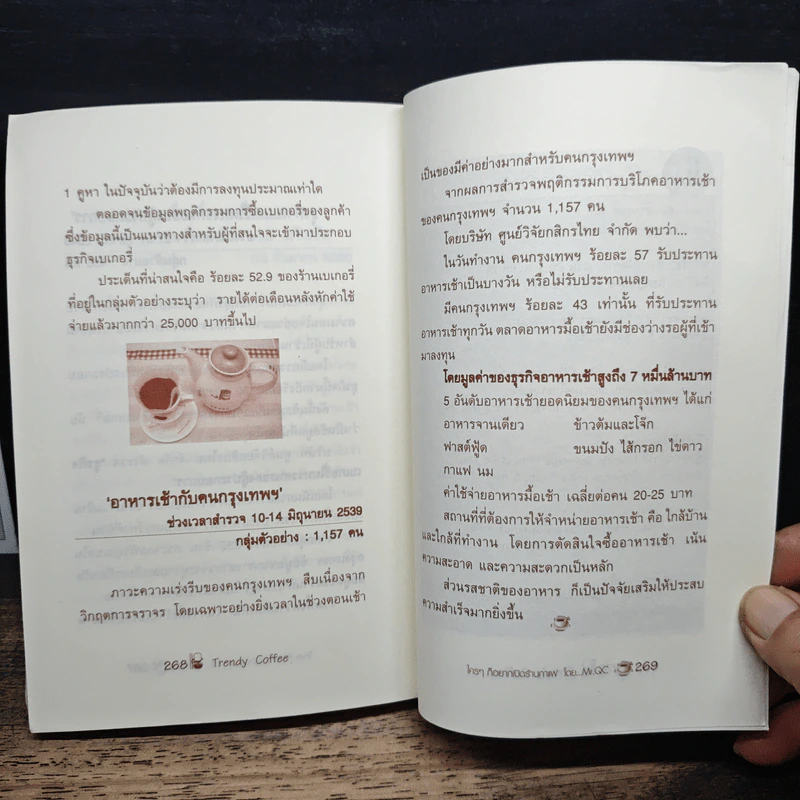 1 คูหา ในปัจจุบันว่าต้องมีการลงทุนประมาณเท่าใด
ตลอดจนข้อมูลพฤติกรรมการซื้อเบเกอรี่ของลูกค้า
ซึ่งข้อมูลนี้เป็นแนวทางสำหรับผู้ที่สนใจจะเข้ามาประกอบ
ธุรกิจเบเกอรี่
ประเด็นที่น่าสนใจคือ ร้อยละ 52.9 ของร้านเบเกอรี่
ที่อยู่ในกลุ่มตัวอย่างระบุว่า รายได้ต่อเดือนหลังหักค่าใช้
จ่ายแล้วมากกว่า 25,000 บาทขึ้นไป
'อาหารเช้ากับคนกรุงเทพฯ'
ช่วงเวลาสำรวจ 10-14 มิถุนายน 2539
กลุ่มตัวอย่าง : 1,157 คน
ภาวะความเร่งรีบของคนกรุงเทพฯ สืบเนื่องจาก
วิกฤตการจราจร โดยเฉพาะอย่างยิ่งเวลาในช่วงตอนเช้า
268 Trendy Coffee
เป็นของมีค่าอย่างมากสำหรับคนกรุงเทพฯ
จากผลการสำรวจพฤติกรรมการบริโภคอาหารเช้า
ของคนกรุงเทพฯ จำนวน 1,157 คน
โดยบริษัท ศูนย์วิจัยกสิกรไทย จำกัด พบว่า...
ในวันทำงาน คนกรุงเทพฯ ร้อยละ 57 รับประทาน
อาหารเช้าเป็นบางวัน หรือไม่รับประทานเลย
มีคนกรุงเทพฯ ร้อยละ 43 เท่านั้น ที่รับประทาน
อาหารเช้าทุกวัน ตลาดอาหารมื้อเช้ายังมีช่องว่างรอผู้ที่เข้า
มาลงทุน
โดยมูลค่าของธุรกิจอาหารเช้าสูงถึง 7 หมื่นล้านบาท
5 อันดับอาหารเช้ายอดนิยมของคนกรุงเทพฯ ได้แก่
อาหารจานเดียว ข้าวต้มและโจ๊ก
ฟาสต์ฟู้ด ขนมปัง ไส้กรอก ไข่ดาว
กาแฟ นม
ค่าใช้จ่ายอาหารมื้อเช้า เฉลี่ยต่อคน 20-25 บาท
สถานที่ที่ต้องการให้จำหน่ายอาหารเช้า คือ ใกล้บ้าน
และใกล้ที่ทำงาน โดยการตัดสินใจซื้ออาหารเช้า เน้น
ความสะอาด และความสะดวกเป็นหลัก
ส่วนรสชาติของอาหาร ก็เป็นปัจจัยเสริมให้ประสบ
ความสำเร็จมากยิ่งขึ้น
ใครๆ ก็อยากเปิดร้านกาแฟ โดย...Mr.QC 269